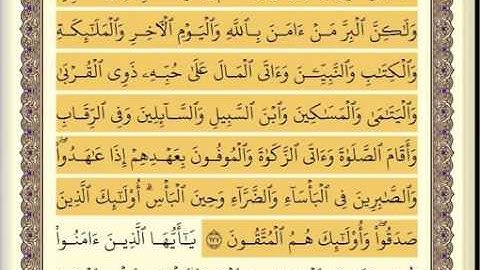 وَلَٰكِنَّ ٱلْبِرَّ مَنْ ءَامَنَ بِٱللَّهِ وَٱلْيَوْمِ ٱلْأَخِرِ وَٱلْمَلَٰٓئِكَةِ
وَٱلْكِتَٰبِ وَٱلنَّبِيِّـۧنَ وَءَاتَى ٱلْمَالَ عَلَىٰ حُبِّهِۦ ذَوِى ٱلْقُرْبَىٰ
وَٱلْيَتَٰمَىٰ وَٱلْمَسَٰكِينَ وَٱبْنَ ٱلسَّبِيلِ وَٱلسَّآئِلِينَ وَفِى ٱلرِّقَابِ
وَأَقَامَ ٱلصَّلَوٰةَ وَءَاتَى ٱلزَّكَوٰةَ وَٱلْمُوفُونَ بِعَهْدِهِمْ إِذَا عَٰهَدُوا۟ ۖ
وَٱلصَّٰبِرِينَ فِى ٱلْبَأْسَآءِ وَٱلضَّرَّآءِ وَحِينَ ٱلْبَأْسِ ۗ أُو۟لَٰٓئِكَ ٱلَّذِينَ
صَدَقُوا۟ ۖ وَأُو۟لَٰٓئِكَ هُمُ ٱلْمُتَّقُونَ ١٧٧ يَٰٓأَيُّهَا ٱلَّذِينَ ءَامَنُوا۟